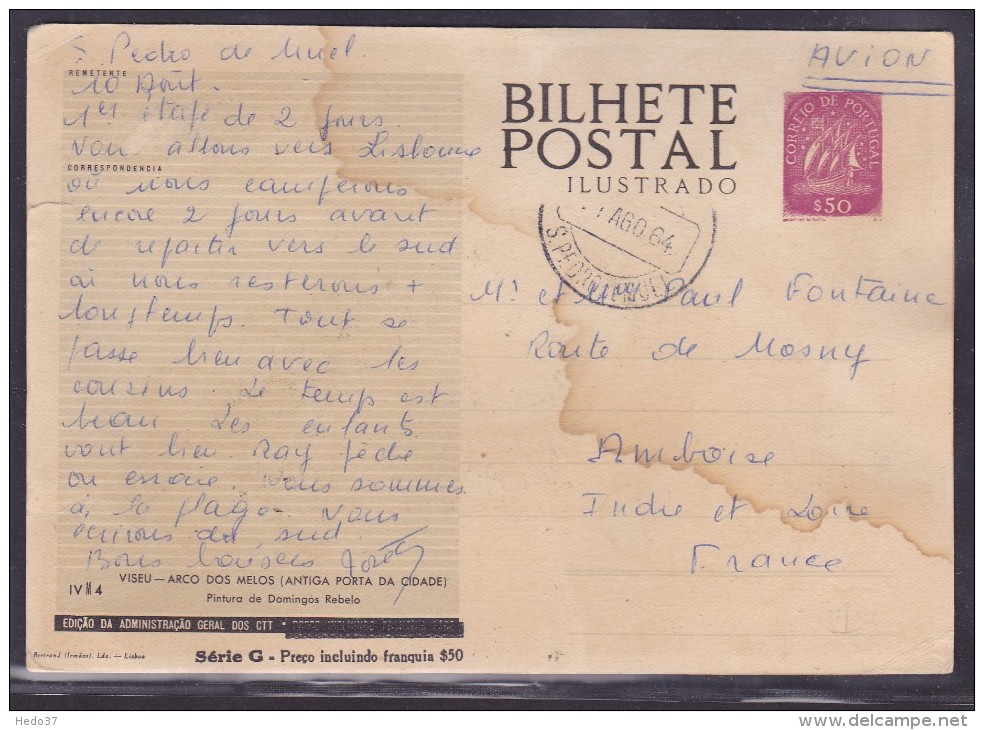 S. Pedro de Muel.
REMETENTE
10 Août.
1er étape de 2 jours.
Nous allons vers Lisbonne
CORRESPONDENCIA
où nous camperons
encore 2 jours avant
de repartir vers le sud
où nous resterons +
longtemps. Tout se
passe bien avec les
cousins. Le temps est
beau Les enfants
vont bien. Ray pêche
ou essaie. Nous sommes
à la plage. Vous
écrirons du sud.
Bons baisers José
VISEU — ARCO DOS MELOS (ANTIGA PORTA DA CIDADE)
IV M 4
Pintura de Domingos Rebelo
EDIÇÃO DA ADMINISTRAÇÃO GERAL DOS CTT
Bertrand (Irmãos), Lda. — Lisboa
Série G - Preço incluindo franquia $50
AVION
BILHETE
POSTAL
ILUSTRADO
CORREIO DE PORTUGAL
$50
AGO.64
S. PEDRO
Mr et Mme Paul Fontaine
Route de Mosny
Amboise
Indre et Loire
France
Hedo37
www.delcampe.net